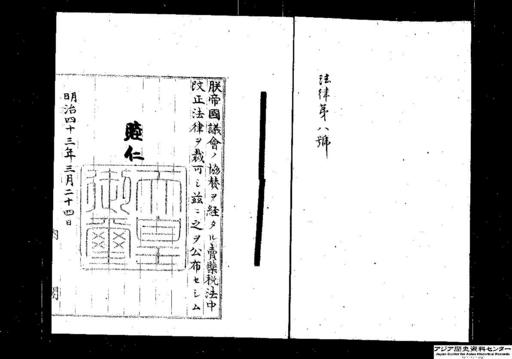 法律第八號
朕帝國議會ノ協賛ヲ経タル賣藥税法中
改正法律ヲ裁可シ茲ニ之ヲ公布セシム
睦仁
天皇御璽
明治四十三年三月二十四日
内閣
アジア歴史資料センター
Japan Center for Asian Historical Records